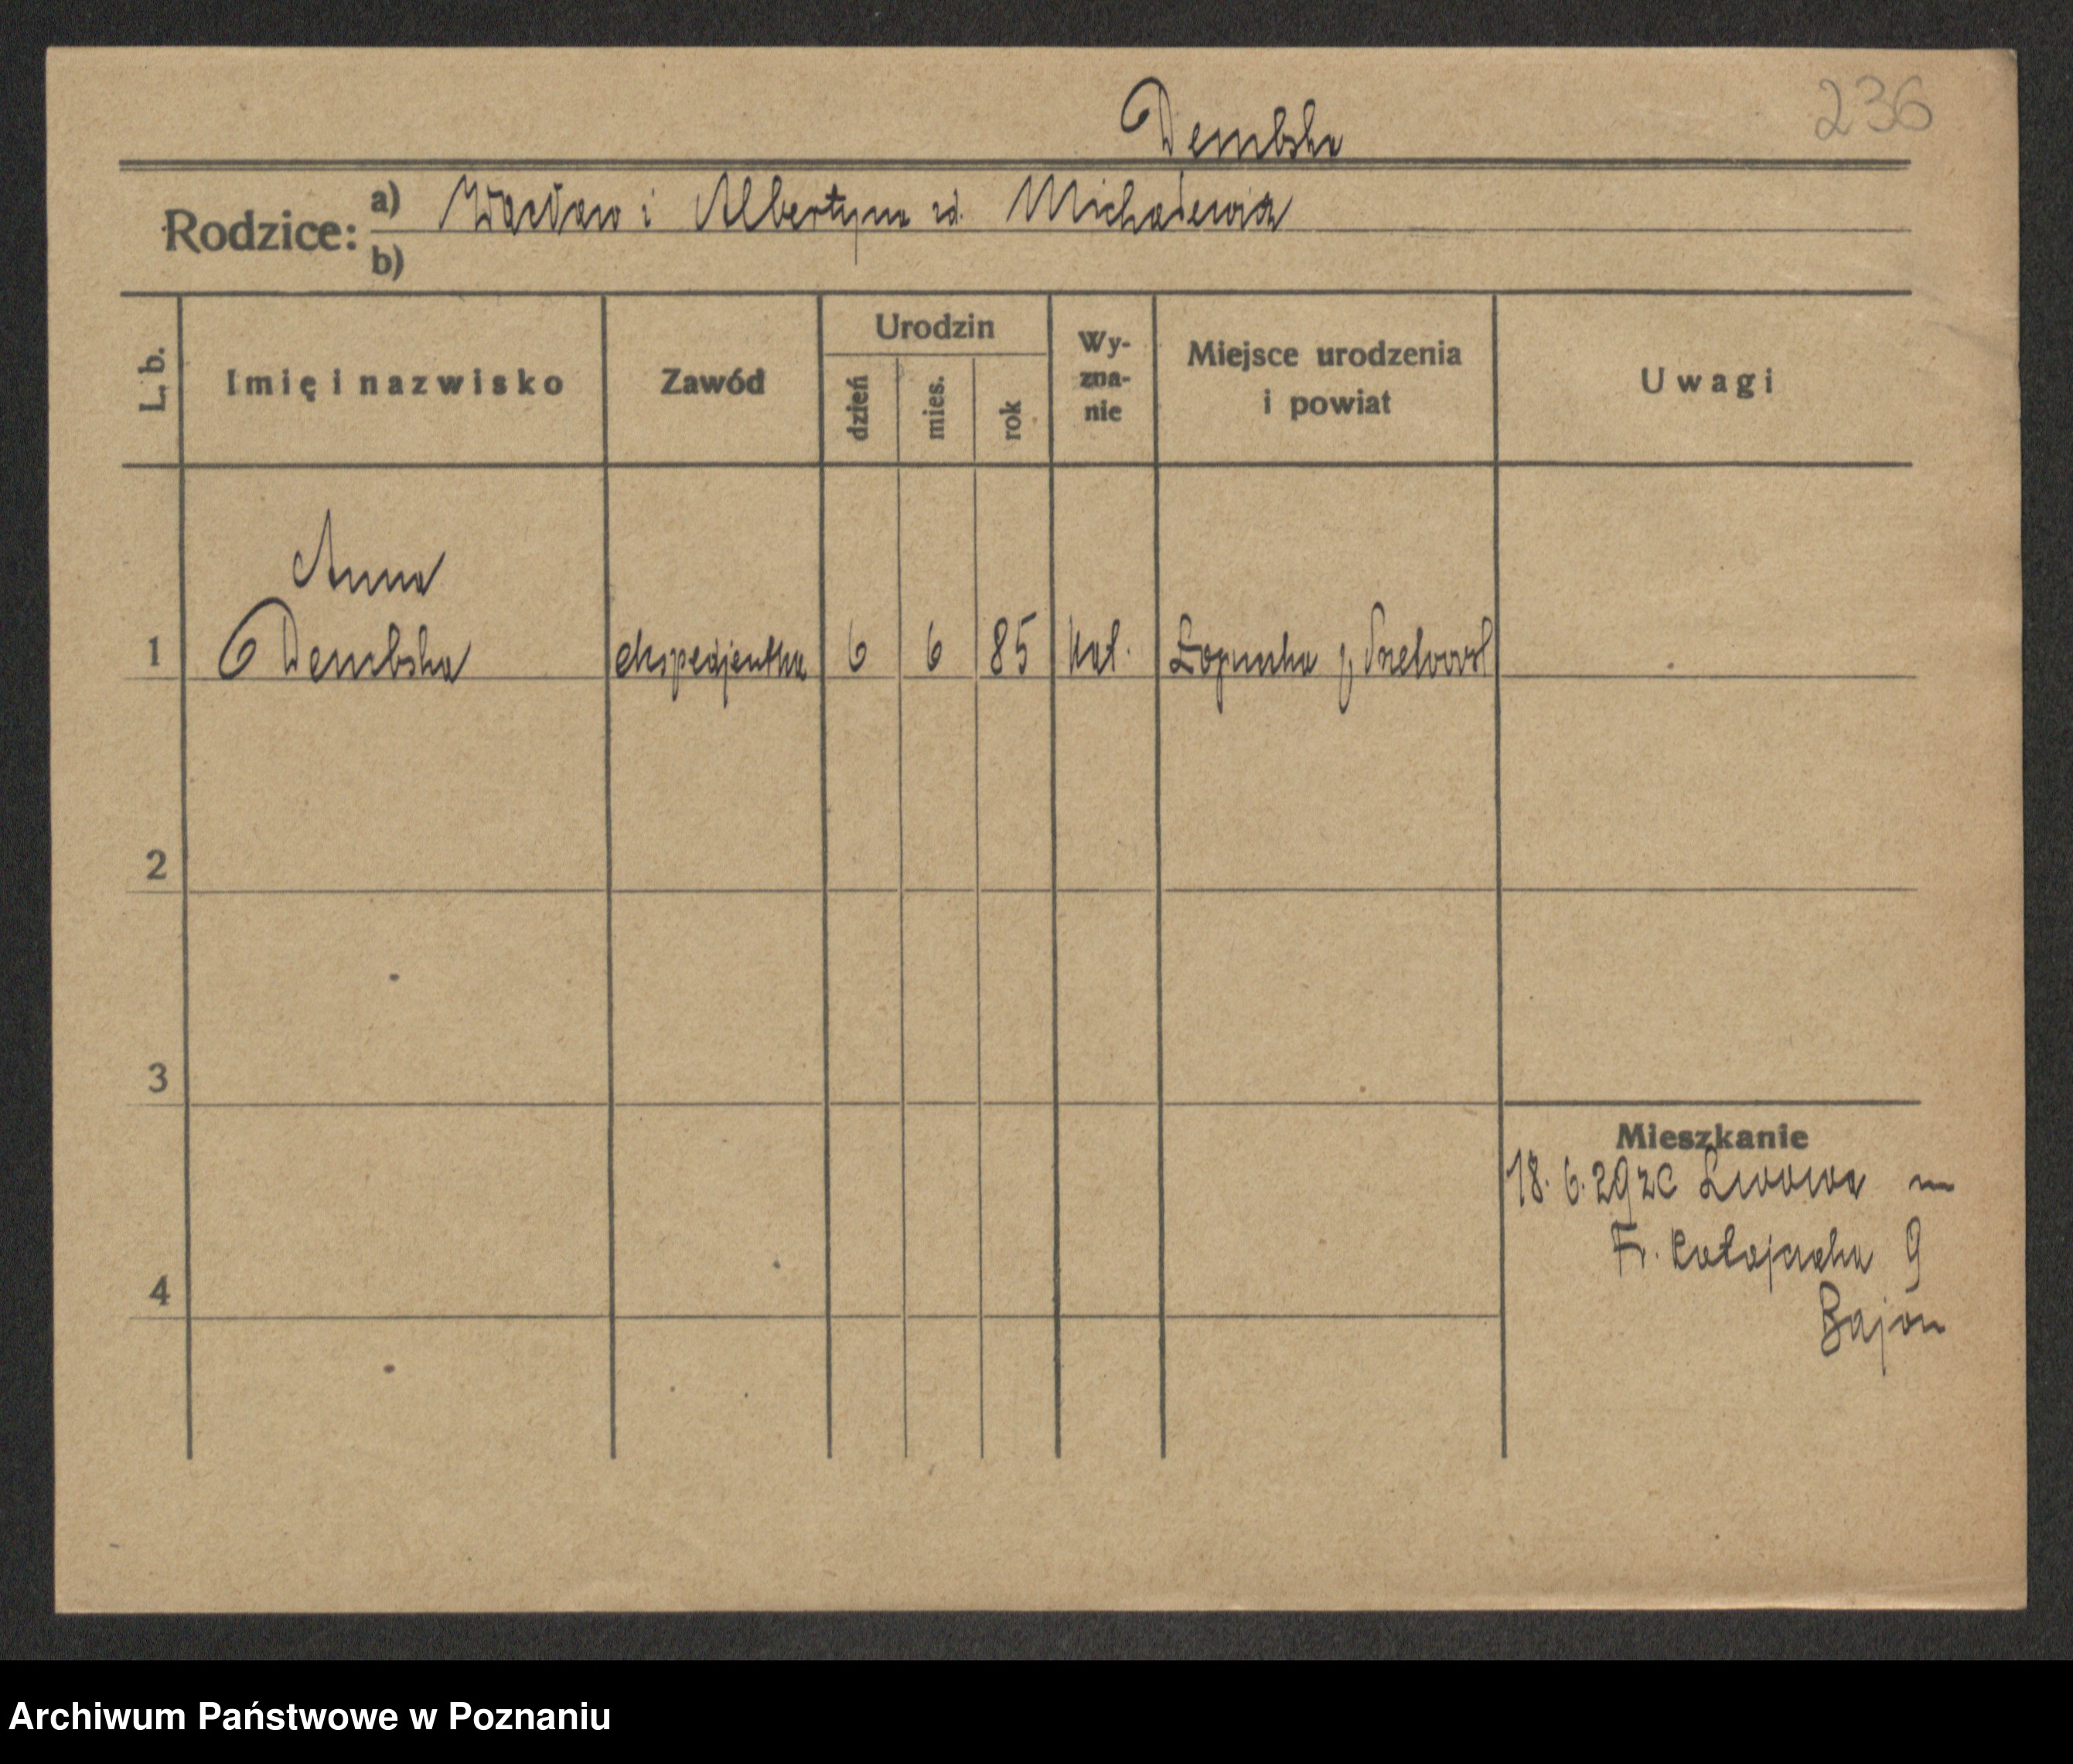 236
Dembska
Rodzice: a) Wacław i Albertyna zd. Michalewicz
b)
L. b.
Imię i nazwisko
Zawód
Urodzin
dzień
mies.
rok
Wy-
zna-
nie
Miejsce urodzenia
i powiat
Uwagi
Anna
1 Dembska ekspedjentka 6 6 85 kat. Łopinka p.
2
3
4
Mieszkanie
18. 6. 29 ze Lwowa
Fr. Ratajczaka 9
Bajon
Archiwum Państwowe w Poznaniu